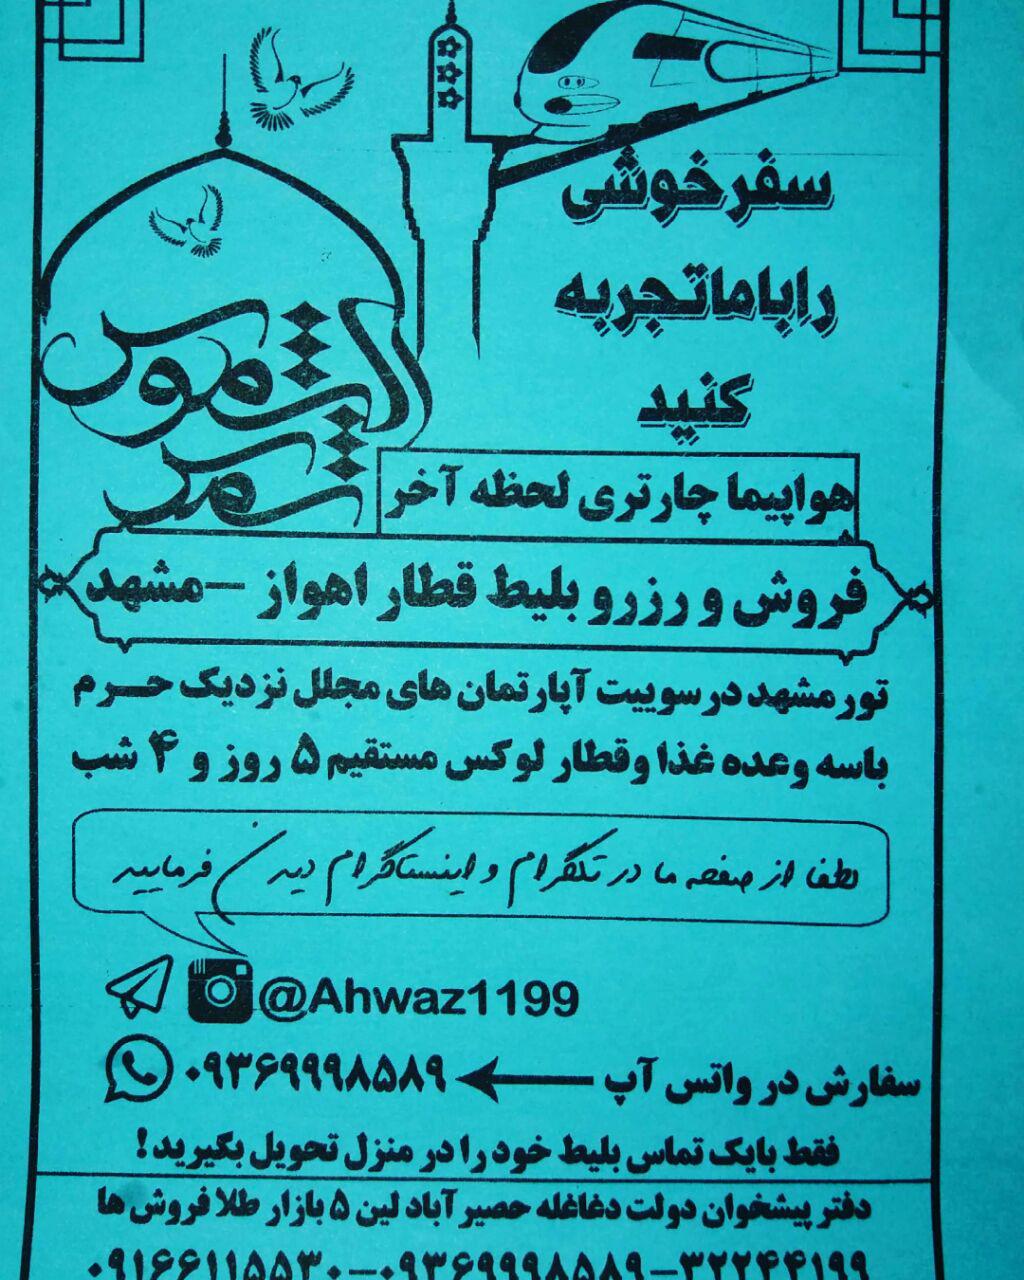 سفر خوشی
را با ما تجربه
کنید
شمس الشموس
هواپیما چارتری لحظه آخر
فروش و رزرو بلیط قطار اهواز - مشهد
تور مشهد در سوییت آپارتمان های مجلل نزدیک حرم
با سه وعده غذا و قطار لوکس مستقیم ۵ روز و ۴ شب
لطفا از صفحه ما در تلگرام و اینستاگرام دیدن فرمایید
@Ahwaz1199
سفارش در واتس آپ ۰۹۳۶۹۹۹۸۵۸۹
فقط با یک تماس بلیط خود را در منزل تحویل بگیرید!
دفتر پیشخوان دولت دغاغله حصیر آباد لین ۵ بازار طلا فروش ها
۳۲۲۴۴۱۹۹-۰۹۳۶۹۹۹۸۵۸۹-۰۹۱۶۶۱۱۵۵۳۰